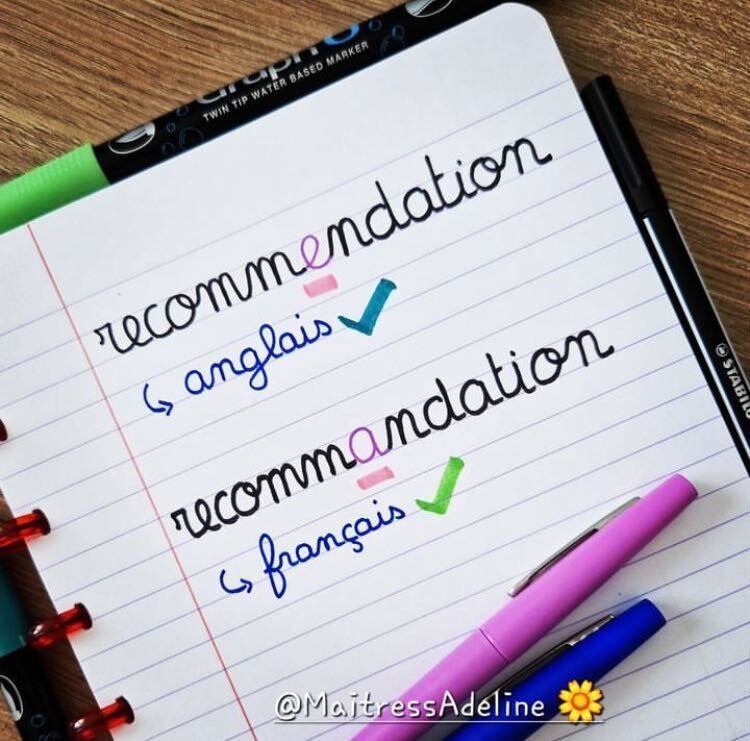 Graph
TWIN TIP WATER BASED MARKER
recommendation
↳ anglais ✓
recommandation
↳ français ✓
STABILO
@MaitressAdeline 🌼